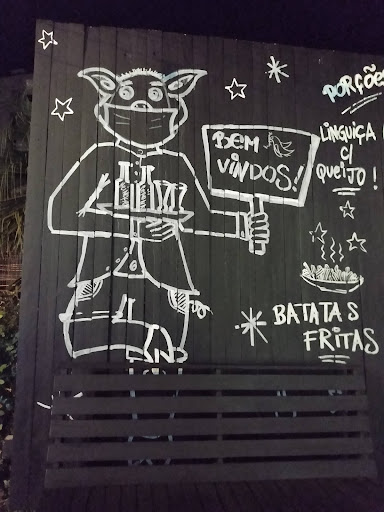 BEM
VINDOS!
PORÇÕES
LINGUIÇA
C/
QUEIJO!
BATATAS
FRITAS